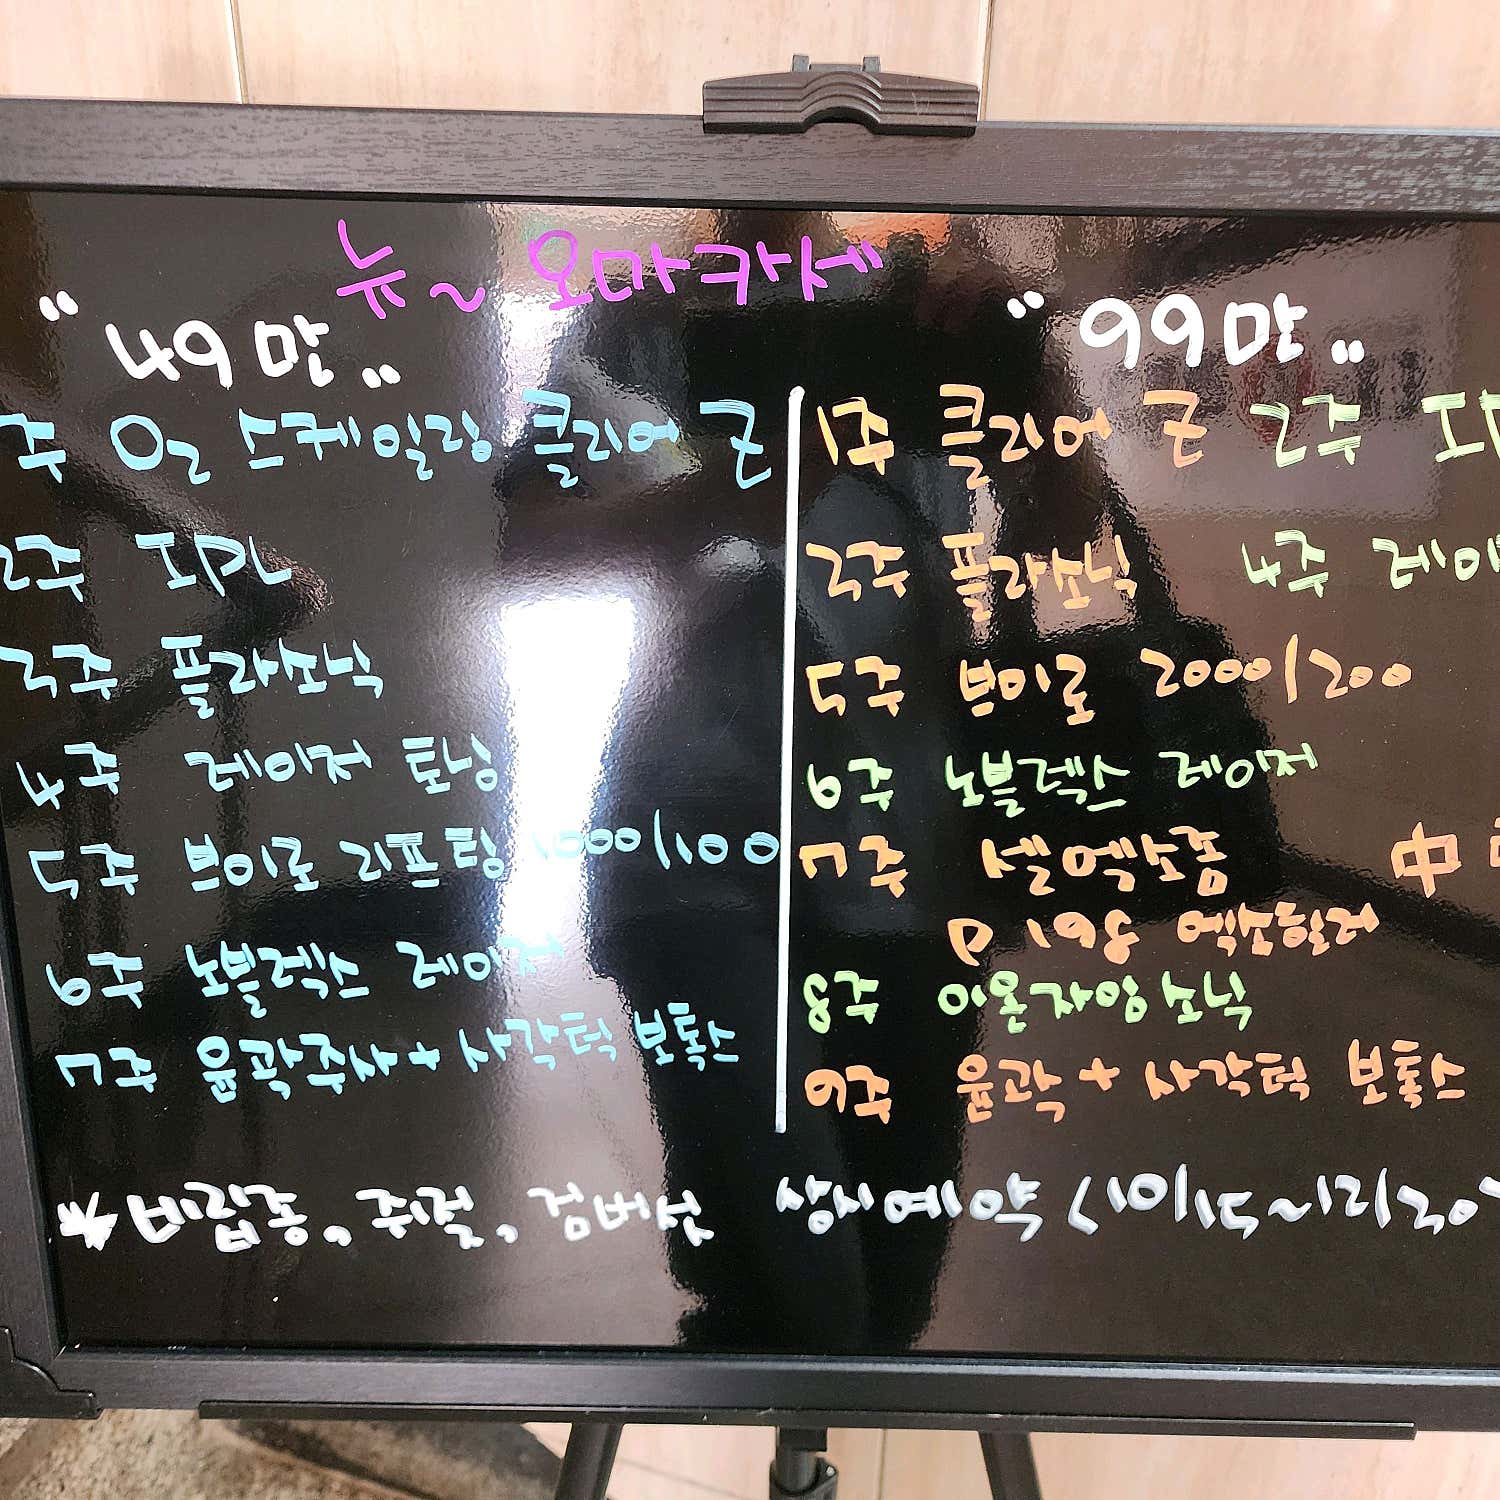 뉴~ 오마카세
"49만"
주 O2 스케일링 클리어 존
2주 IPL
3주 플라소닉
4주 레이저 토닝
5주 브이로 리프팅 1000/100
6주 노블렉스 레이저
7주 윤곽주사 + 사각턱 보톡스
"99만"
1주 클리어 존 2주
3주 플라소닉 4주 레이
5주 브이로 2000/200
6주 노블렉스 레이저
7주 셀엑소좀 中
엑소힐러
8주 이온자임소닉
9주 윤곽 + 사각턱 보톡스
* 비립종, 쥐젖, 검버섯 상시예약 (10/15~12/30